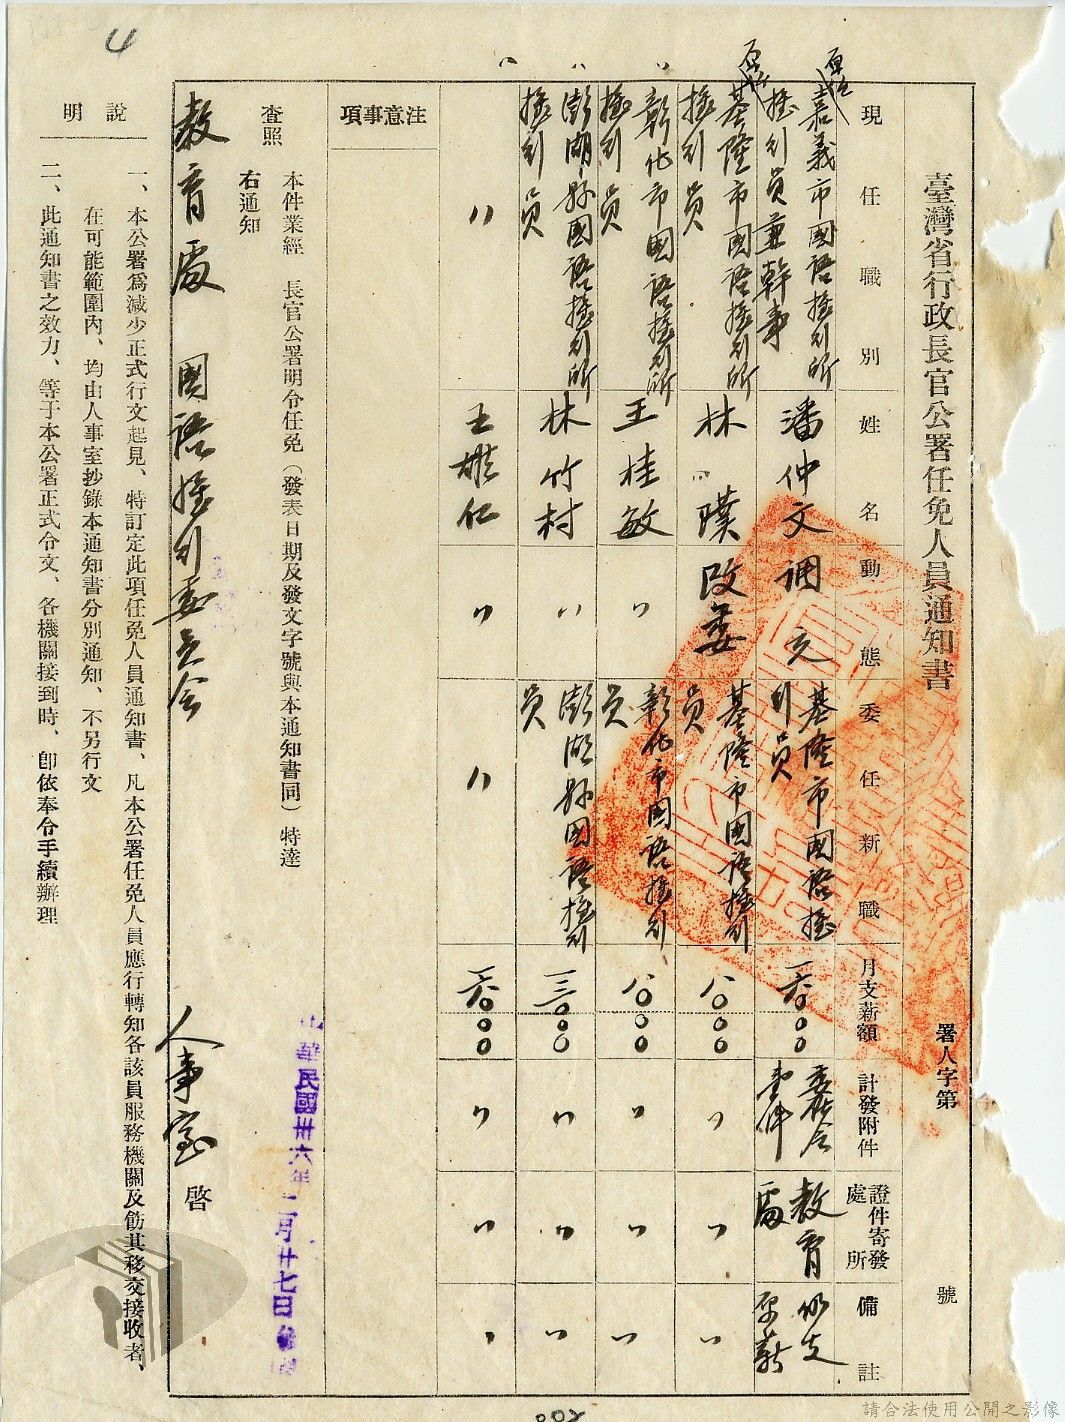 4
臺灣省行政長官公署任免人員通知書
署人字第　號
現任職別
姓名
動態
委任新職
月支薪額
計發附件
證件寄發處所
備註
原任
嘉義市國語推行所
推行員兼幹事
潘仲文
調充
基隆市國語推
行員
一六〇〇〇
委任令
壹件
教育
處
仍支
原薪
原任
基隆市國語推行所
推行員
林璞
改委
基隆市國語推行
員
八〇〇〇
〃
〃
〃
彰化市國語推行所
推行員
王桂敏
〃
彰化市國語推行
員
八〇〇〇
〃
〃
〃
澎湖縣國語推行所
推行員
林竹村
〃
澎湖縣國語推行
員
〃
〃
〃
〃
王
仁
〃
〃
〃
〃
〃
注意事項
本件業經　長官公署明令任免（發表日期及發文字號與本通知書同）特達
查照
右通知
教育處　國語推行委員會
人事室　啓
中華民國卅六年二月廿七日
說明
一、本公署爲減少正式行文起見、特訂定此項任免人員通知書、凡本公署任免人員應行轉知各該員服務機關及飭其移交接收者、
在可能範圍內、均由人事室抄錄本通知書分別通知、不另行文
二、此通知書之效力、等于本公署正式令文、各機關接到時、卽依奉令手續辦理
請合法使用公開之影像